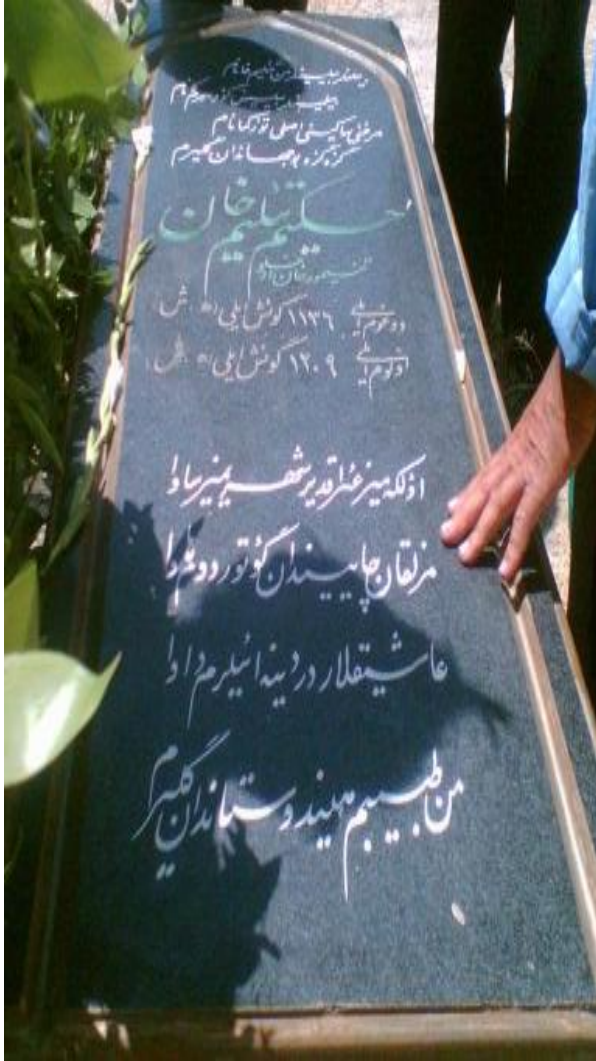 اصلی تورکمانام
گزه گزه بو جهاندان گلیرم
حکیم تیلیم خان
دوغوم ایلی ۱۱۳۶ گونش ایلی (ه ش)
اؤلوم ایلی ۱۲۰۹ گونش ایلی (ه ش)
اؤلکه میز عراقدیر شهریمیز ساوا
مزلقان چاییندان گؤتوردوم دوا
عاشیقلار دردینه ائیلرم داوا
من طبیبم هیندوستاندان گلیرم